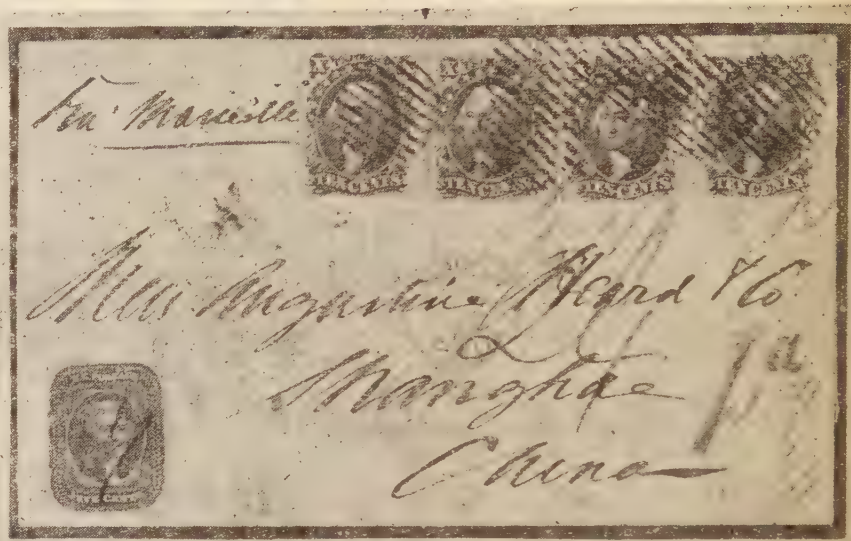 Via Marseille
TEN CENTS TEN CENTS TEN CENTS TEN CENTS
Mess Augustine Heard & Co
Shanghae
China
1d